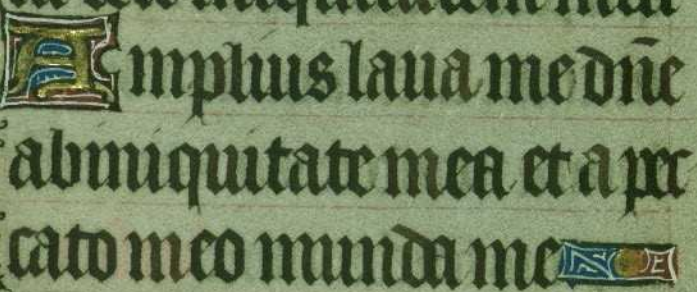 iniquitatem
Amplius laua me dn̄e
ab iniquitate mea et a pec
cato meo munda me